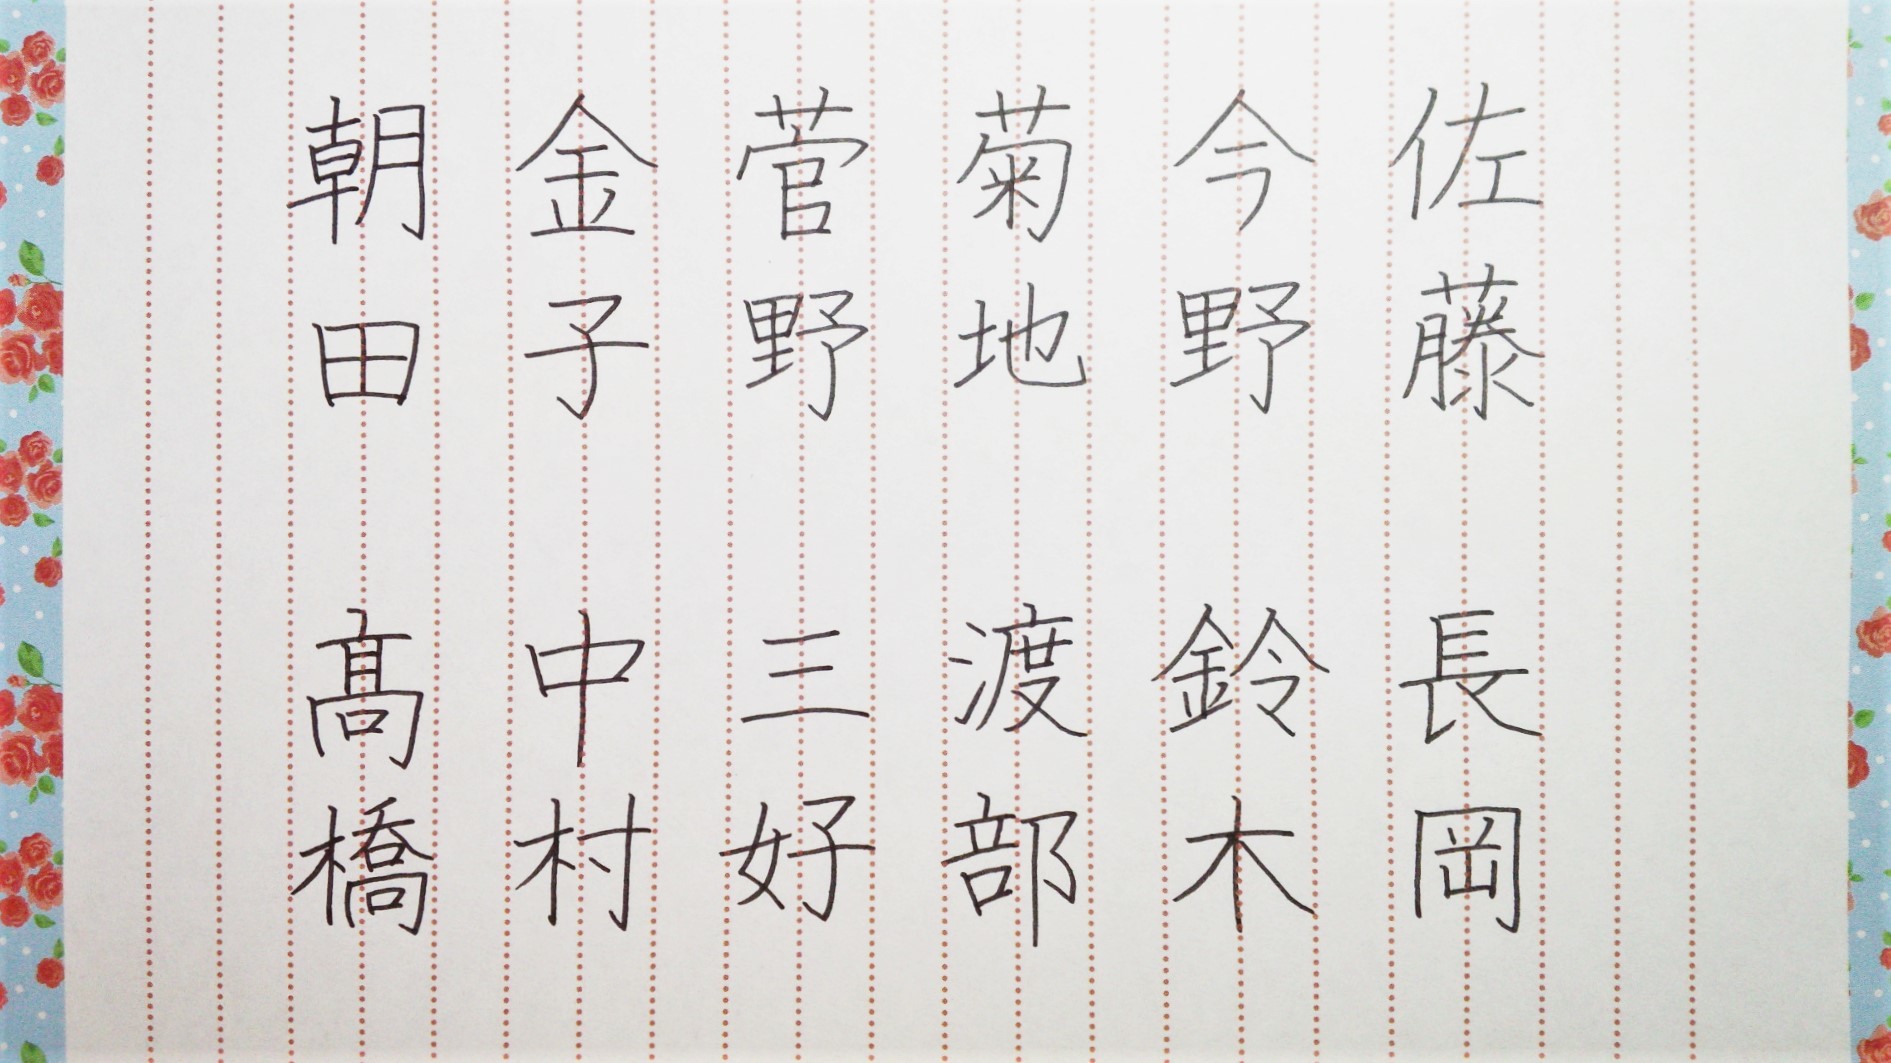 佐藤 長岡
今野 鈴木
菊地 渡部
菅野 三好
金子 中村
朝田 髙橋